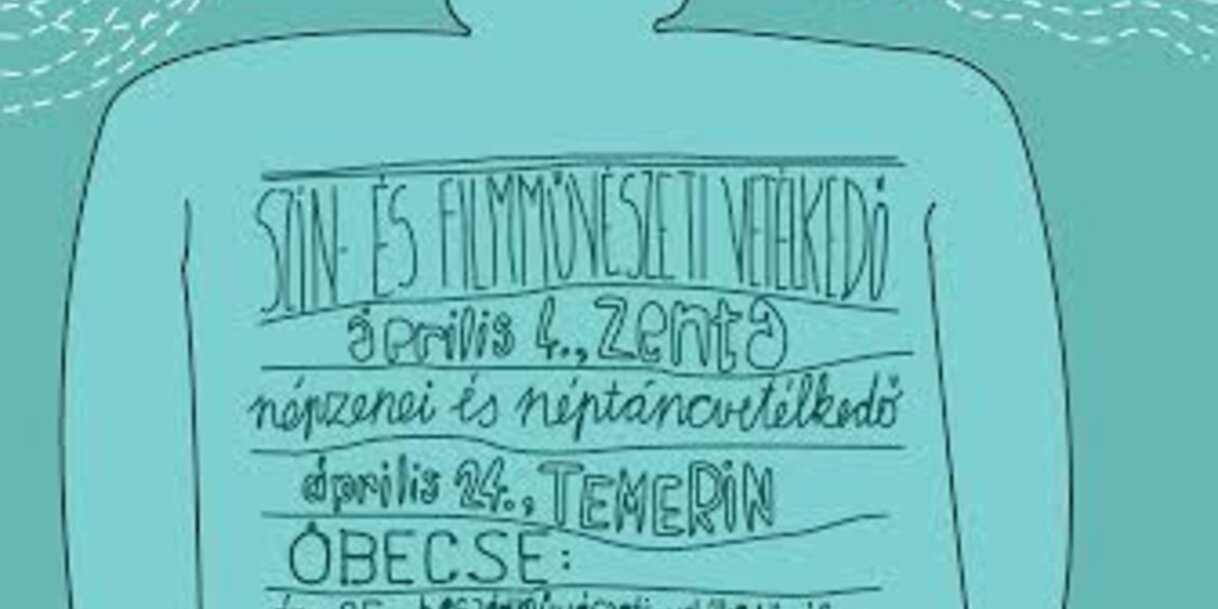 SZÍN- ÉS FILMMŰVÉSZETI VETÉLKEDŐ
április 4., Zenta
népzenei és néptáncvetélkedő
április 24., TEMERIN
ÓBECSE: